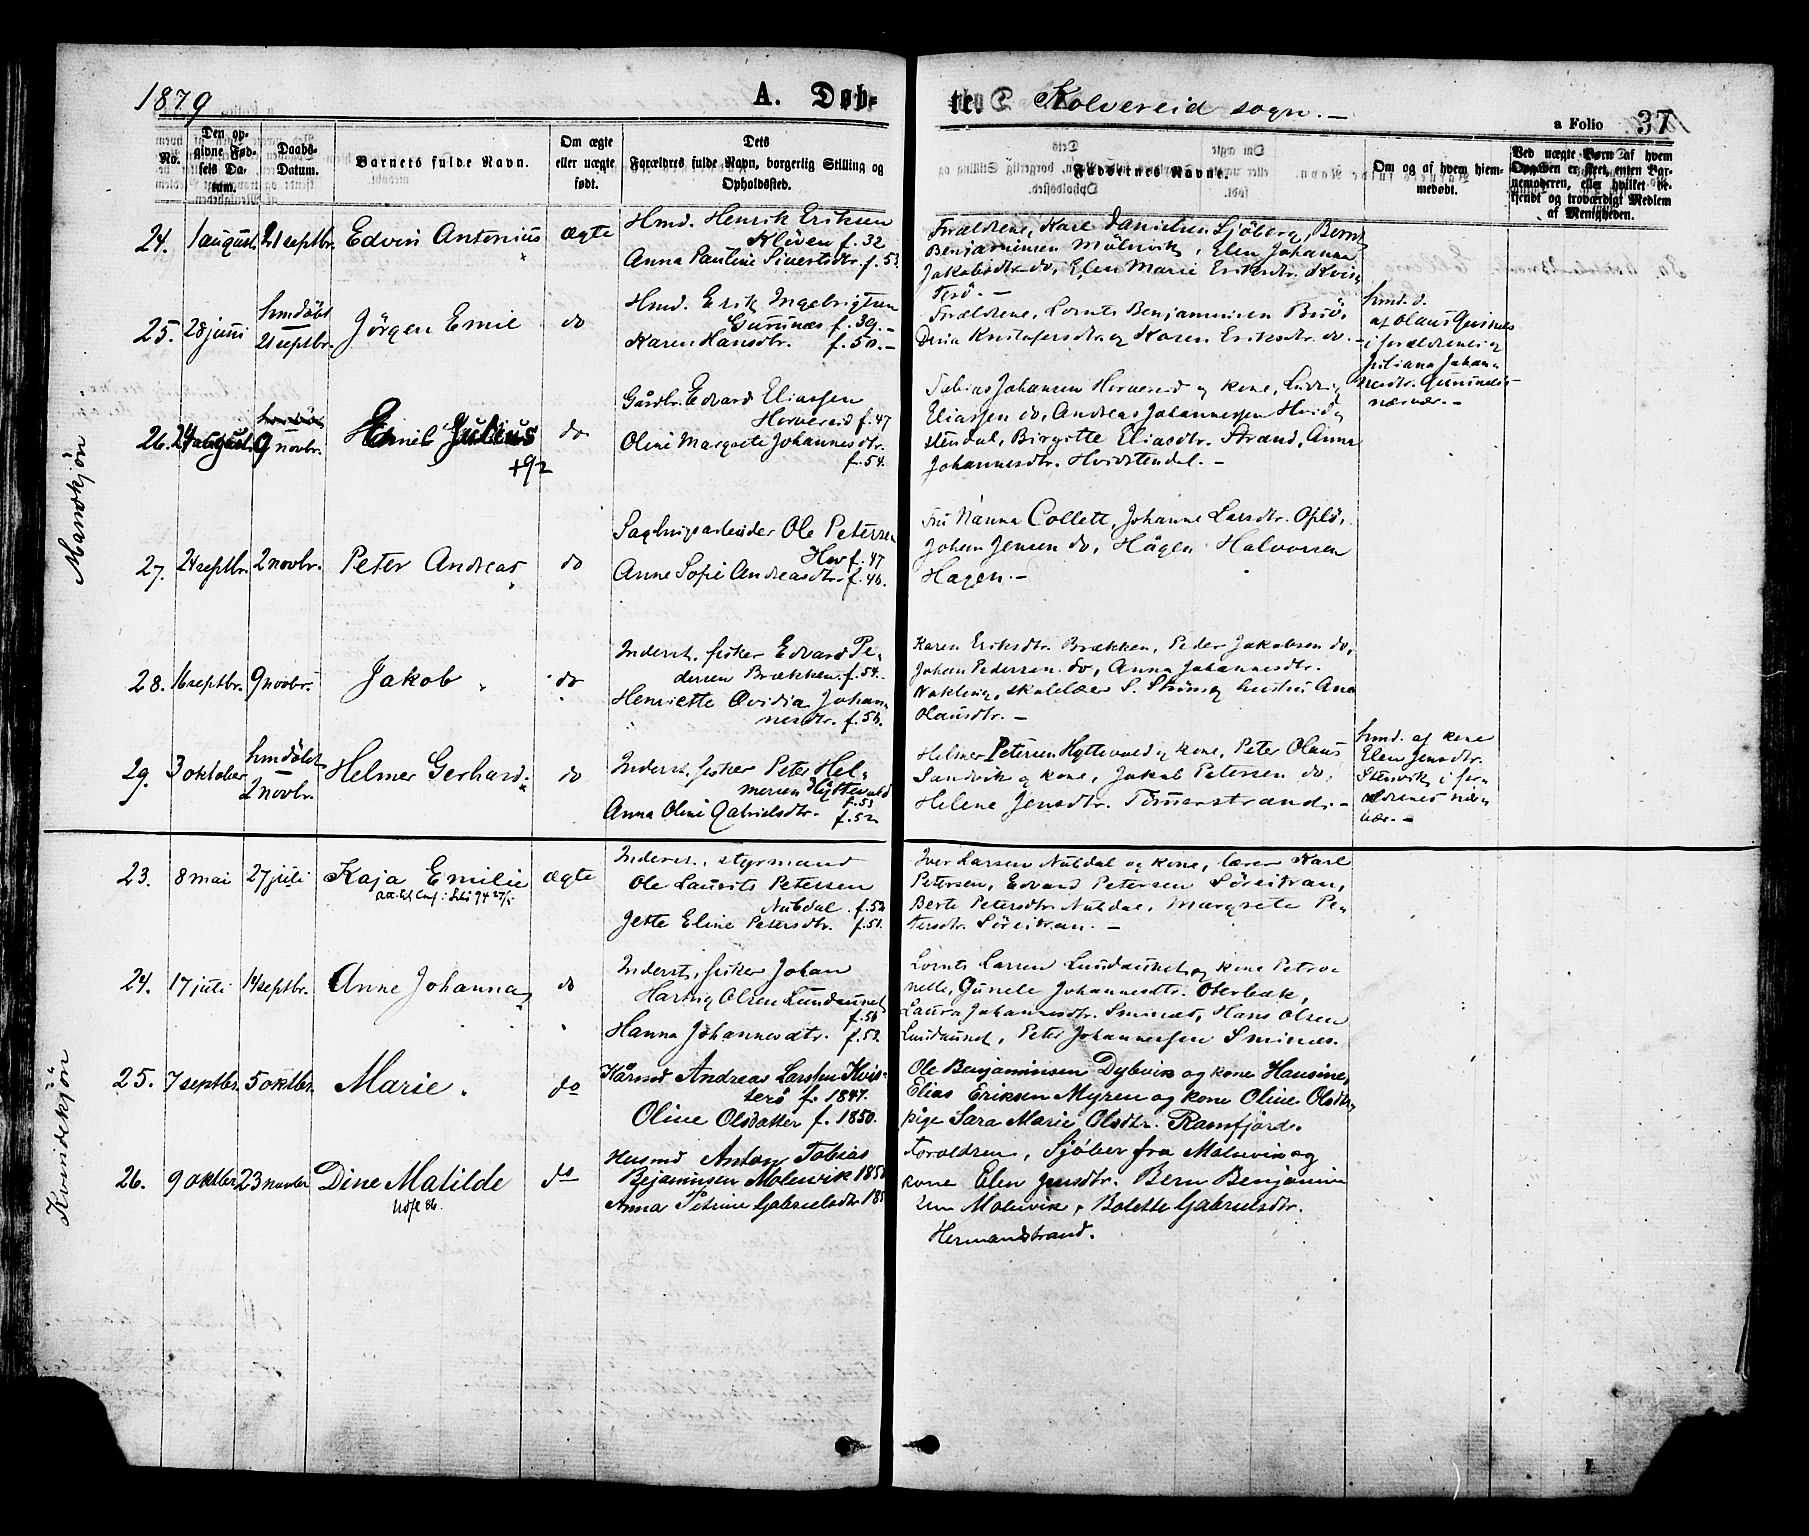 1879
A. Døb-
te. Kolvereid sogn. -
a Folio 37
No.
Den op-
givne Fød-
sels Da-
tum.
Daabs-
Datum.
Barnets fulde Navn.
Om ægte
eller uægte
født.
Dets
Forældres fulde Navn, borgerlig Stilling og
Opholdssted.
Faddernes Navne.
Om og af hvem hjem-
medøbt.
Ved uægte Børn af hvem
Opgaven er skeet, enten Bar-
nemoderen, eller hvilket be-
kjendt og troværdigt Medlem
af Menigheden.
Mandkjøn.
24. 1 august 21 septbr. Edvin Antonius ægte
Hmd. Henrik Eriksen
Kliven f. 32
Anna Pauline Sivertsdtr. f. 53
Forældrene, Karl Danielsen Sjöberg, Bernt
Benjaminsen Mulevik, Elen Johanna
Jakobsdtr. do, Elen Marie Eriksdtr. Kvis-
terö. -
25. 28 juni hmdöbt 21 septbr. Jörgen Emil do
Hmd. Erik Ingebrigtsen
Gusnnæs f. 39. -
Karen Hansdtr. f. 50. -
Forældrene, Lornts Benjaminsen Buö,
Dina Kristofersdtr. og Karen Eriksdtr. do. -
hmd. d.
af Olaus
i forældrenes og
Juliana Johan-
nesdtr.
nærvær. -
26. 24 august 9 novbr. Emil Julius do
+92
Gårdbr. Edvard Eliassen
Horvereid f. 47
Oline Margrete Johannesdtr.
f. 54.
Tobias Johansen Horvereid og kone, Ludvig
Eliassen do, Andreas Johannessen Hvid-
stendal, Birgitte Eliasdtr. Strand, Anna
Johannesdtr. Hvidstendal. -
27. 24 septbr. 2 novbr. Peter Andreas do
Sagbrugsarbeider Ole Petersen
f. 47
Anne Sofie Andreasdtr. f. 46.
Fru Nanna Collett, Johanne Larsdtr. Oplö,
Johan Jensen do, Hågen Halvorsen
Hagen. -
28. 16 septbr. 9 novbr. Jakob do
Inderst, fisker Edvard Pe-
dersen Brækken f. 54.
Henriette Ovidia Johan-
nesdtr. f. 56.
Karen Eriksdtr. Brækken, Peder Jakobsen do,
Johan Pedersen do, Anna Johannesdtr.
Nakling, skolelær S. hustru Ane
Olausdtr. -
29. 3 oktober hmdöbt 2 novbr. Helmer Gerhard do
Inderst, fisker Peter Hel-
mersen Hyttevold
f. 53
Anna Oline Gabrielsdtr. f. 52
Helmer Petersen Hyttevold og kone, Peter Olaus
Sandvik og kone, Jakob Petersen do,
Helene Jensdtr. Timerstrand. -
hmd. af kone
Elen Jensdtr.
Stenvik i for-
ældrenes nær-
vær. -
Kvindekjön
23. 8 mai 27 juli Kaja Emilie ægte
Inderst, styrmand
Ole Laurits Petersen
Nubdal f. 52
Jette Eline Petersdtr. f. 51.
Iver Larsen Nubdal og kone, lærer Karl
Petersen, Edvard Petersen Söreitran,
Berte Petersdtr. Nubdal, Margrete Pe-
tersdtr. Söreitran. -
24. 17 juli 14 septbr. Anne Johanna do
Inderst, fisker Johan
Hartvig Olsen Lundaunet
f. 56
Hanna Johannesdtr. f. 52.
Lornts Larsen Lundaunet og kone Petro-
nelle, Gunele Johannesdtr. Oterbæk,
Laura Johannesdtr. Sminæs, Hans Olsen
Lundaunet, Peter Johannessen Sminæs.
25. 7 septbr. 5 oktbr. Marie do
Kårmd Andreas Larssen Kvis-
terö f. 1847.
Oline Olsdatter f. 1850.
Ole Benjaminsen Dybvik og kone Hansine,
Elias Eriksen Myren og kone Oline Olsdtr,
pige Sara Marie Olsdtr. Ramfjord.
26. 9 oktbr. 23 novbr Dine Matilde do
Husmd Anton Tobias
Bejaminsen Molevik 185
Anna Petrine Gabrielsdtr. 185
Foreldren, Sjöber fra Molevik og
kone Elen Jensdtr. Bern Benjamin
sen Molevik, Bolette Gabrielsdtr.
Hermandstrand.